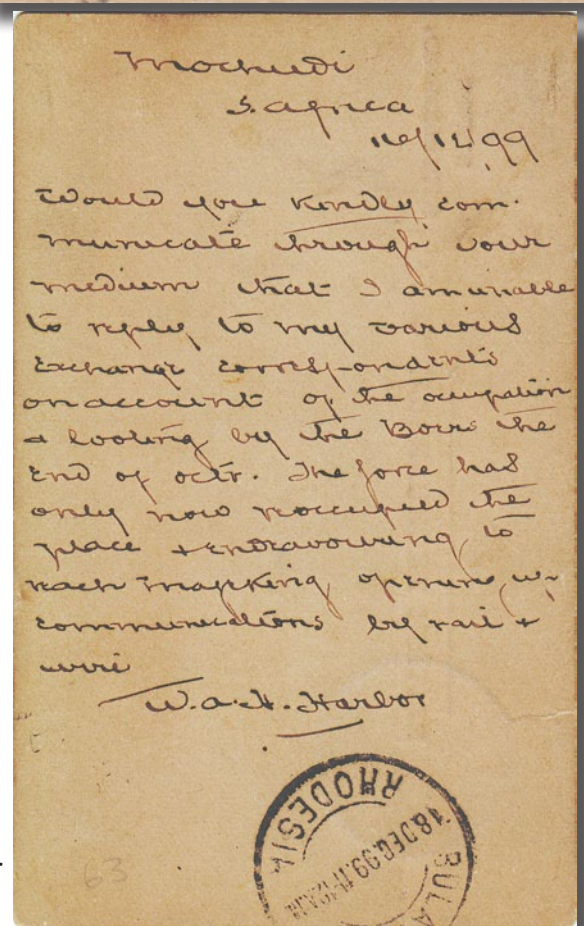 Mochudi
S. Africa
16/12/99
Would you kindly com-
municate through your
medium that I am unable
to reply to my various
exchange correspondents
on account of the occupation
& looting by the Boers the
end of octr. The force has
only now reoccupied the
place & endeavouring to
reach Mafeking opening up
communications by rail &
wire
W.A.H. Harbor
RHODESIA
18 DEC 99 11-12A.M
BULA
63